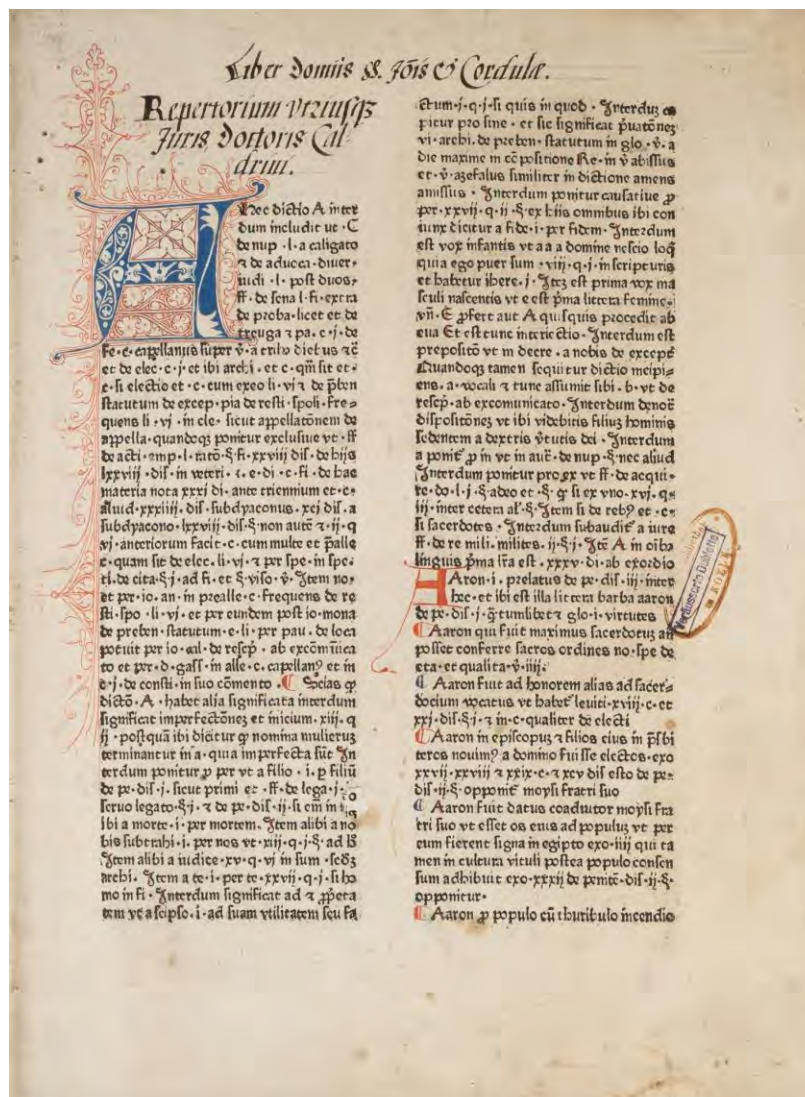 Liber Domus SS. Jōis & Cordulæ.
Repertorium vtriusqꝫ
Juris Doctoris Cal-
drini.
Hec dictio A inter
dum includit ut · C
de nup · l · a caligato
⁊ de aduoca · diuer-
iudi · l · post duos ·
ff · de sena l · fi · extra
de proba · licet et de
treuga ⁊ pa · c · j · de
fe · c · capellanus super v̄ · a tribꝰ dictus ⁊c̄
et de elec · c · j · et ibi archi · et c · qm̄ sit et ·
c · si electio et · c · cum exeo li · vj ⁊ de p̄ben
statutum de excep · pia de resti · spoli · fre-
quens li · vj · in cle · sicut appellatōnem de
appella · quandoqꝫ ponitur exclusiue vt · ff
de acti · emp · l · ratō · §· fi · xxviij dis · de hijs
lxxviij · dis · in veteri · ⁊ · e · di · c · fi · de hac
materia nota xxxj di · ante triennium et · c ·
aliud · xxxiiij · dis · subdyaconus · xcj dis · a
subdyacono · lxxviij · dis · § · non autē ⁊ · ij · q
vj · anteriorum facit · c · cum multe et p̄alle
c · quam sit de elec · li · vj · ⁊ per spe · in spe ·
ti · de cita · § · j · ad fi · et § · viso · v̄ · Item no ·
et per io · an · in preall · c · frequens de re
sti · spo · li · vj · et per eundem post io · mona
de preben · statutum · e · li · per pau · de loca
potuit per io · cal · de rescp̄ · ab excōmūica
to et per · d · gass · in alle · c · capellanꝰ et in
c · j · de consti · in suo cōmento · Scias ꝙ
dictō · A · habet alia significata interdum
significat imperfectōnez et inicium · xiij · q
ij · postquā ibi dicitur ꝙ nomina mulierus
terminantur in a · quia imperfecta sūt In
terdum ponitur ꝓ per vt a filio · i · ꝑ filiū
de pe · dis · j · sicut primi et · ff · de lega · j ·
seruo legato · § · j · ⁊ de pe · dis · ij · si em̄ in
ibi a morte · i · per mortem · Item alibi a no
bis subtrahi · i · per nos vt · xij · q · j · § · ad
Item alibi a iudice · xv · q · vj in sum · sedꝫ
archi · Item a te · i · per te · xxvij · q · j · si ho
mo in fi · Interdum significat ad ⁊ ꝓpeta
tem vt a seipso · i · ad suam vtilitatem seu fa
ctum · j · q · j · si quis in quod · Interduꝫ ca
pitur pro sine · et sic significat p̄uatōnez
vi · archi · de preben · statutum in glo · v̄ · a
die maxime in cō positione Re · in v̄ abissus
et · v̄ · azefalus similiter in dictione amens
amissus · Interdum ponitur causatiue ꝓ
per · xxvij · q · ij · § · ex hiis omnibus ibi con
iunx dicitur a fide · i · per fidem · Interdum
est vox infantis vt a a a domine nescio loq̄
quia ego puer sum · viij · q · j · in scripturis
et habetur ihere · j · Iteꝫ est prima vox ma
sculi nascentis vt e est p̄ma littera femine ·
vn̄ · E ꝓfert aut A quisquis procedit ab
eua Et est tunc interiectio · Interdum est
prepositō vt in decre · a nobis de except̄
Quandoqꝫ tamen sequitur dictio incipi-
ens · a · vocali ⁊ tunc assumit sibi · b · vt de
rescp̄ · ab excomunicato · Interdum denoc̄
dispositōnes vt ibi videbitis filiuꝫ hominis
sedentem a dextris v̄tutis dei · Interdum
a ponit̄ ꝓ in vt in autē · de nup · § · nec aliud
Interdum ponitur pro ex vt ff · de acqui ·
re · do · l · j · § · adeo et · § · si ex vno · xvj · q ·
iij · inter cetera al̄ · § · Item si de rebꝰ et · c ·
si sacerdotes · Interdum subaudit̄ a iure
ff · de re mili · milites · ij · § · j · Itē A in oībꝰ
linguis p̄ma lr̄a est · xxxv · di · ab exordio
AAron · i · prelatus de pe · dis · iij · inter
hec · et ibi est illa littera barba aaron
de pe · dis · j · q̄tumlibet ⁊ glo · i · virtutes
Aaron qui fuit maximus sacerdotuꝫ an
posset conferre sacros ordines no · spe de
eta · et qualita · v̄ · iiij ·
Aaron fuit ad honorem alias ad sacer-
docium vocatus vt habet̄ leuiti · xviij · c · et
xxj · dis · § · j · ⁊ in · c · qualiter de electi
Aaron in episcopuꝫ ⁊ filios eius in p̄sbi
teros nouimꝰ a domino fuisse electos · exo
xxvij · xxviij ⁊ xxix · c · ⁊ xcv dis esto de pe ·
dis · ij · § · opponit̄ moysi fratri suo
Aaron fuit datus coadiutor moysi fra
tri suo vt esset os eius ad populuꝫ vt per
eum fierent signa in egipto exo · iiij qui ta
men in cultura vituli postea populo consen
sum adhibuit exo · xxxij de penitē · dis · ij · § ·
opponitur ·
Aaron ꝓ populo cū thuribulo incendio